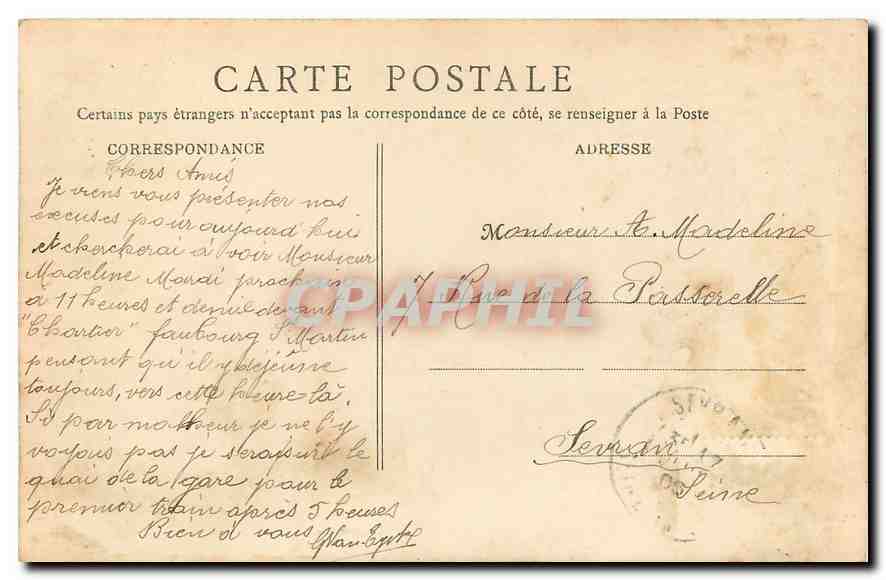 CARTE POSTALE
Certains pays étrangers n'acceptant pas la correspondance de ce côté, se renseigner à la Poste
CORRESPONDANCE
Chers Amis
Je viens vous présenter nos
excuses pour aujourd'hui
et chercherai à voir Monsieur
Madeline Mardi prochain
à 11 heures et demie devant
"Chartier" faubourg St Martin
pensant qu'il y déjeûne
toujours, vers cette heure là.
Si par malheur je ne l'y
voyais pas je serais sur le
quai de la gare pour le
premier train après 5 heures
Bien à vous
ADRESSE
Monsieur A. Madeline
7 Rue de la Passerelle
Sevran
Seine
CPAPHIL